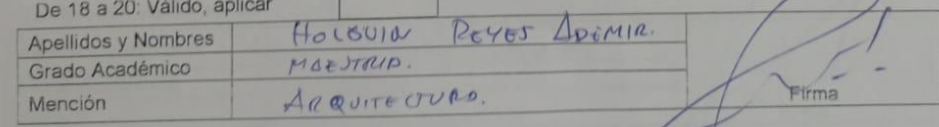 De 18 a 20: Válido, aplicar
Apellidos y Nombres HOLGUIN REYES ADIMIR.
Grado Académico MAESTRIA.
Mención ARQUITECTURA.
Firma